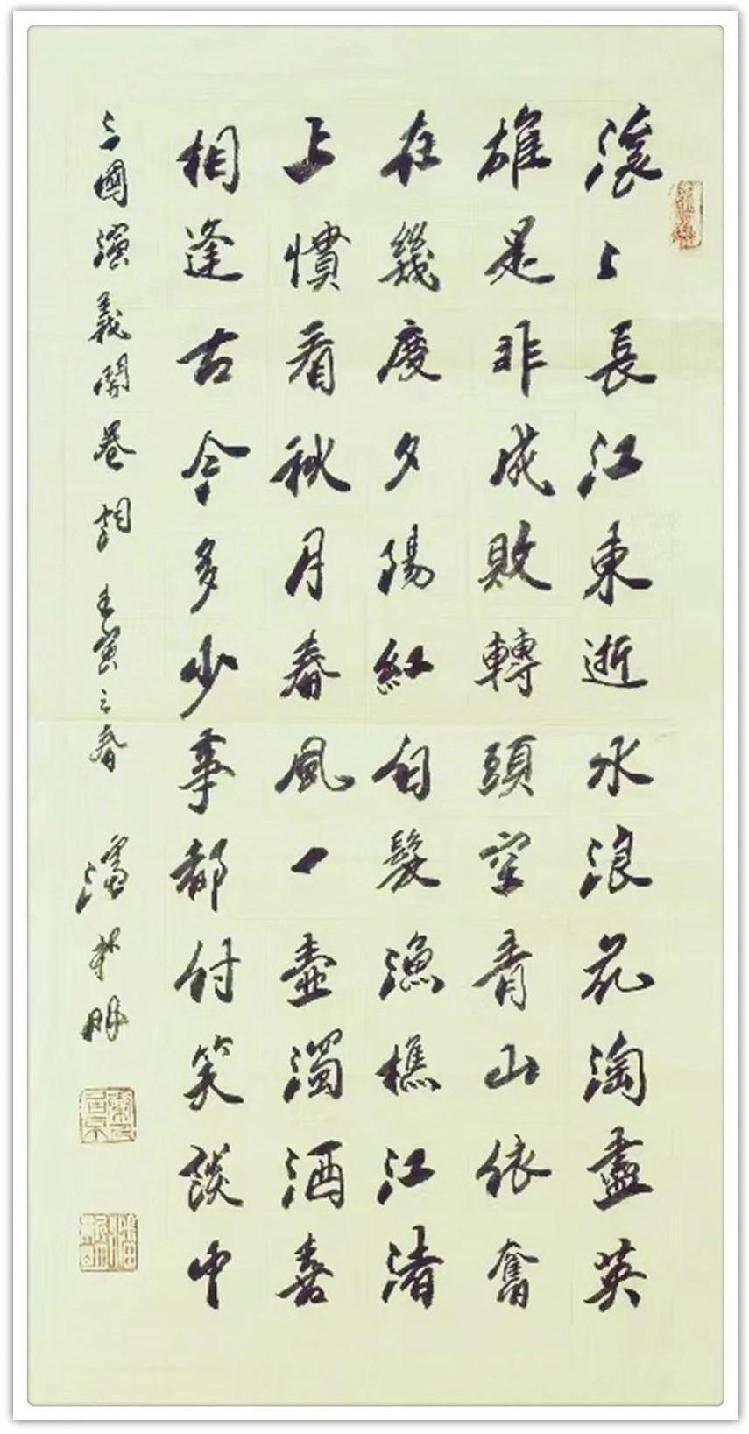 滚〻長江東逝水浪花淘盡英
雄是非成敗轉頭空青山依奮
在幾度夕陽紅白髮漁樵江渚
上慣看秋月春風一壺濁酒喜
相逢古今多少事都付笑談中
三國演義開卷詞壬寅之春